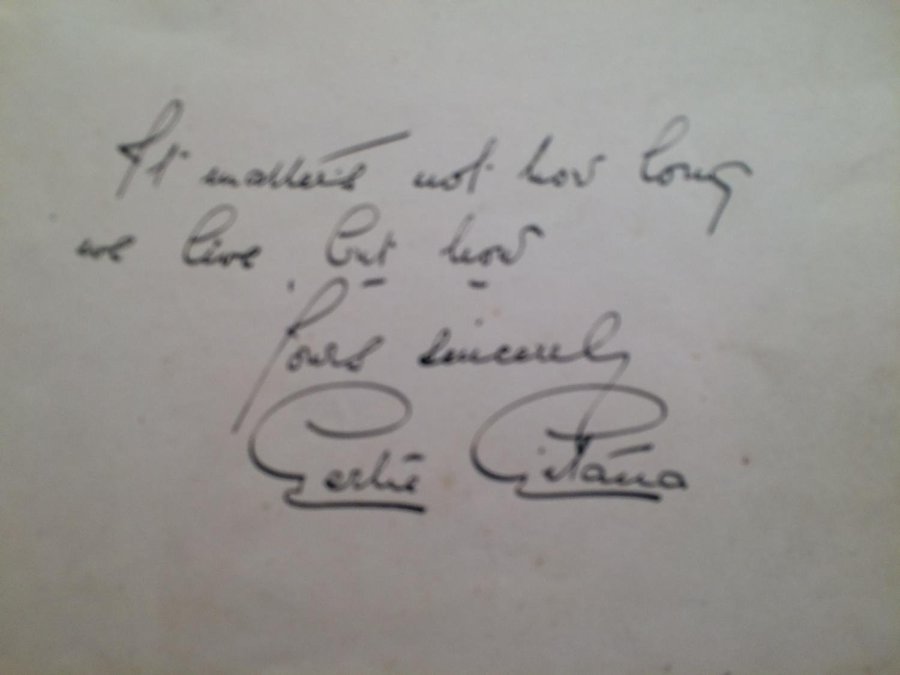 It matters not how long
we live but how
Yours sincerely
Gertie Gitana